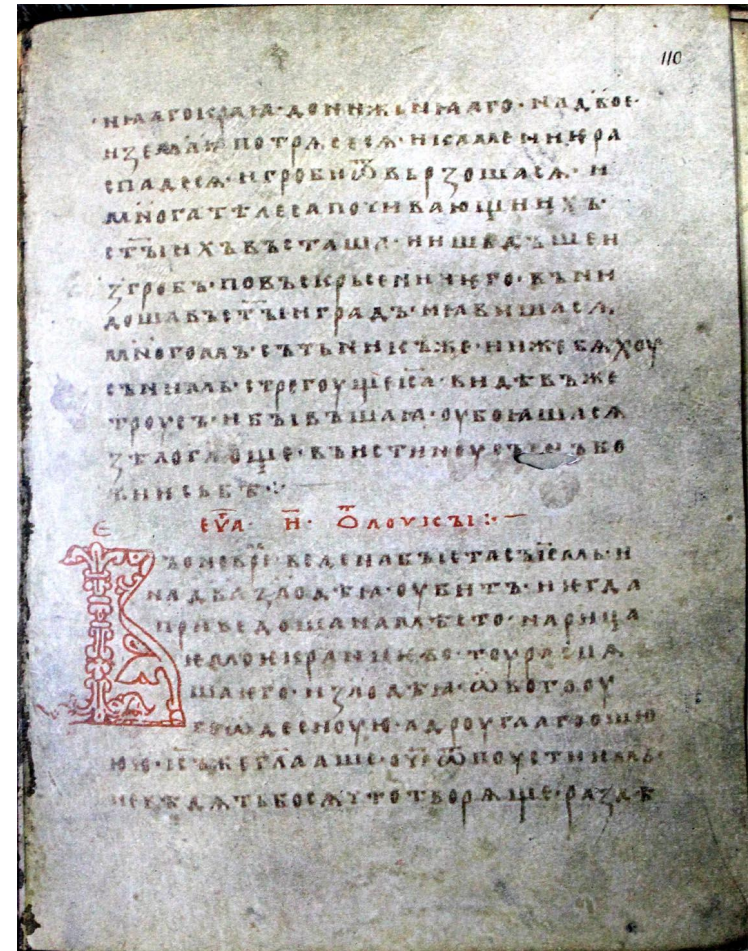 110
нꙗаго краꙗ · до нижьнꙗаго · на двое ·
и землꙗ потрѧсесѧ · и камение ра
спадесѧ · и гроби ѿвьрзошасѧ · и
многа тѣлеса почивающиихъ
ст҃ыихъ въсташѧ · и ишьдъше и
згробъ · по въскрьсении ѥго · вънн
доша въ ст҃ыи градъ · и ꙗвишасѧ
многомъ · сътьникъ же · и иже бѧхоу
съ нимь · стрегоуще ꙇ҃са · видѣвъше
троусъ · и бывъшаꙗ · оубоꙗшасѧ
ѕѣло гл҃юще · въ истиноу с҃нъ бо
жии сь бѣ ·:·
еѵⷢ҇а · н҃ · ѿ лоукы :~
Въ оно врⷨ҇ѧ · ведена быста съ іс҃мь · и
на два злодѣꙗ · оубитъ · и ѥгда
приведоша на мѣсто · нарица
ѥмоѥ краниѥво · тоу распѧ
шѧ ѥго · и злодѣꙗ · ового оу
бо о десноую · а дроугааго ошю
юю · іс҃ъ же гл҃ааше · оч҃е ѿпоусти имъ ·
не вѣдѧть бо сѧ что творѧще · раздѣ